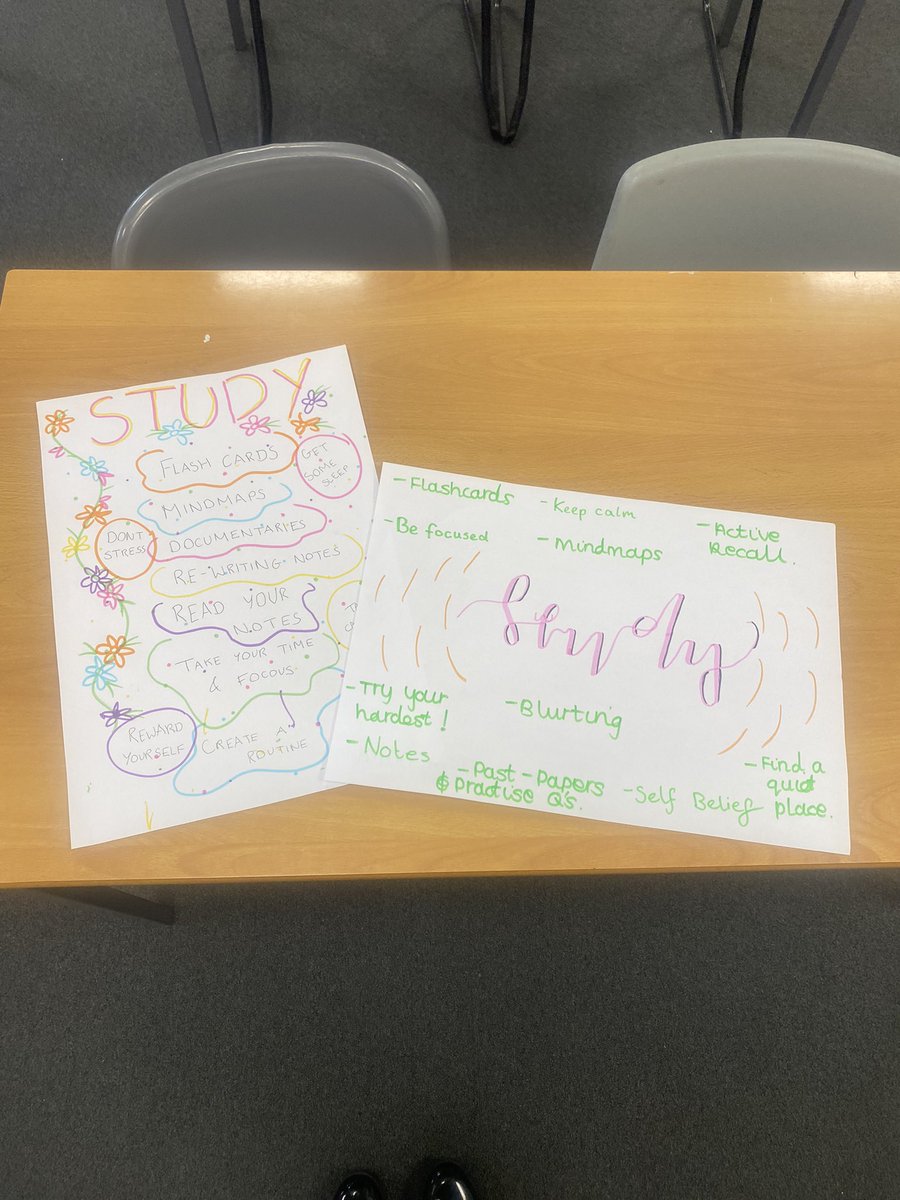 STUDY
FLASH CARDS
GET
SOME
SLEEP
MINDMAPS
DONT
STRESS
DOCUMENTARIES
RE-WRITING NOTES
READ YOUR
NOTES
TAKE YOUR TIME
& FOCOUS
REWARD
YOURSELF
CREATE A
ROUTINE
- Flashcards
- Keep calm
- Active
Recall.
- Be focused
- Mindmaps
Study
- Try your
hardest!
- Blurting
- Notes
- Past - Papers
& Practise Q's.
- Self Belief
- Find a
quiet
place.